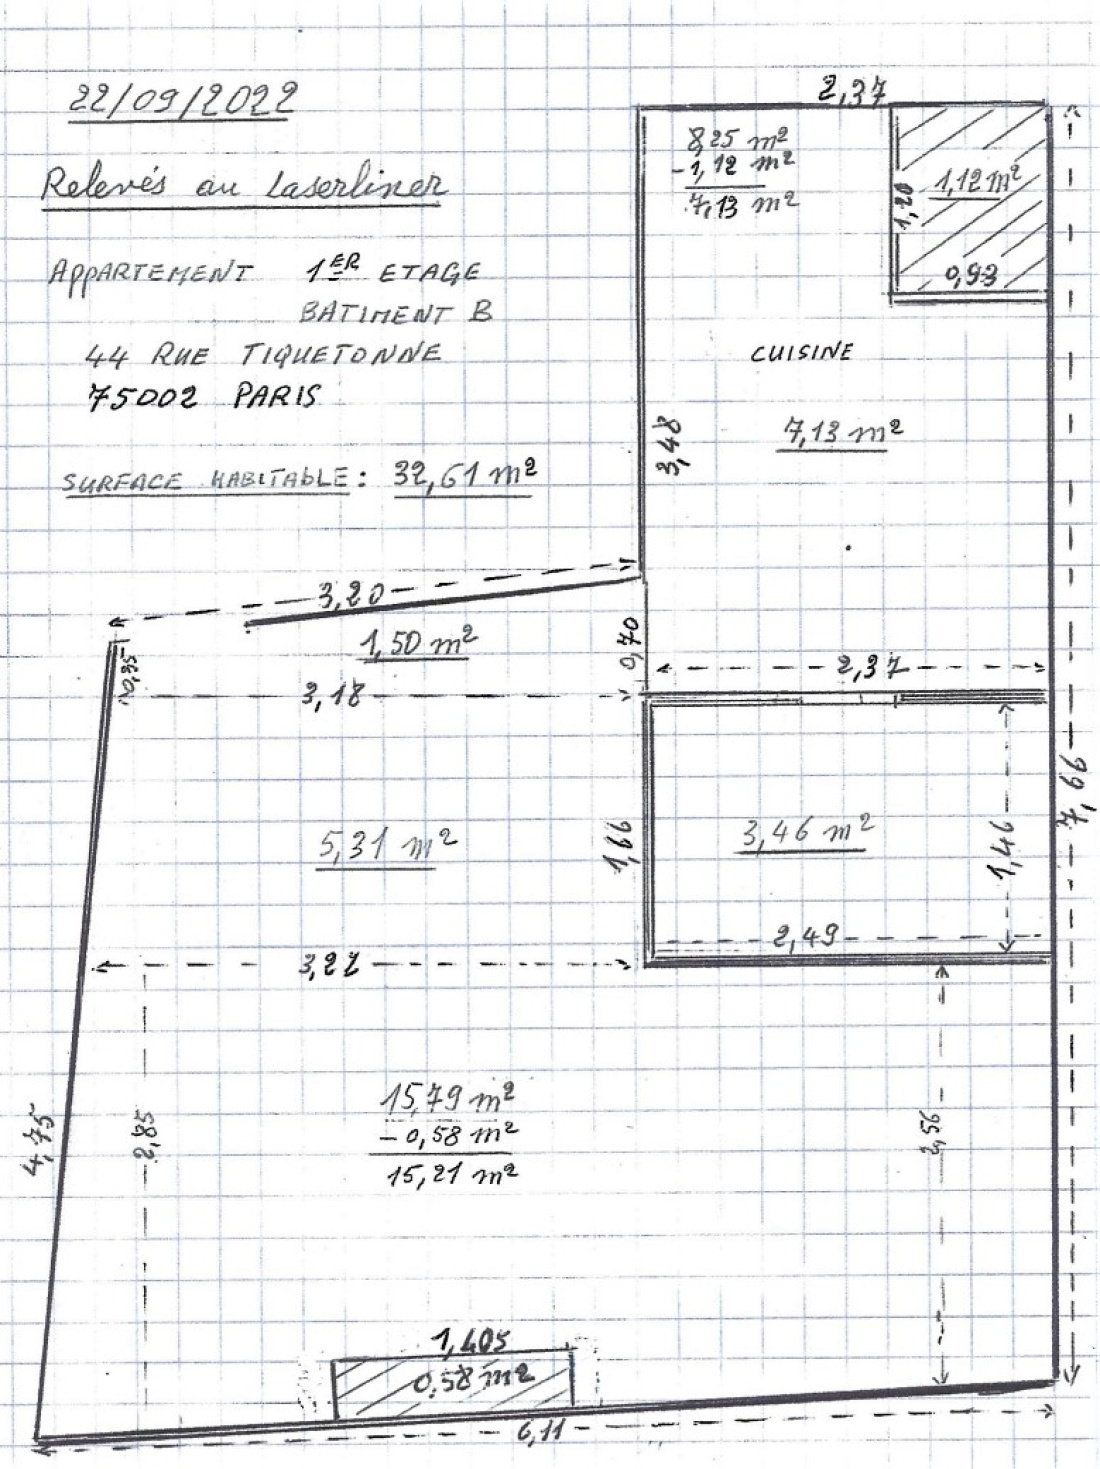 22/09/2022
Relevés au Laserliner
APPARTEMENT 1ER ETAGE
BATIMENT B
44 RUE TIQUETONNE
75002 PARIS
SURFACE HABITABLE : 32,61 m²
2,37
8,25 m²
-1,12 m²
7,13 m²
1,20
1,12 m²
0,93
CUISINE
7,13 m²
3,48
3,20
1,50 m²
0,70
0,35
3,18
2,37
7,66
5,31 m²
1,66
3,46 m²
1,46
2,49
3,22
15,79 m²
- 0,58 m²
15,21 m²
4,75
2,85
2,56
1,405
0,58 m²
6,11